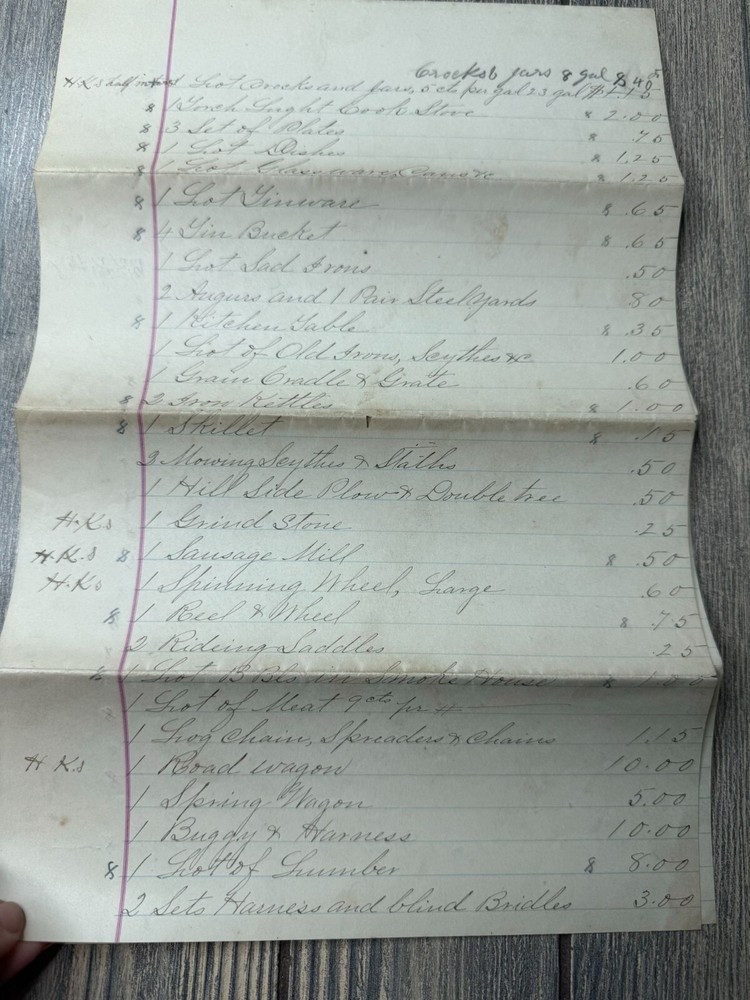 Crocks & jars 8 gal 8 .40
H.K.s half in 1 Lot Crocks and jars, 5 cts per gal 23 gal 1.15
8 1 Torch Light Cook Stove 8 2.00
8 3 Set of Plates .75
8 1 Lot Dishes 8 1.25
8 1 Lot Glassware, Cans &c 8 1.25
8 1 Lot Tinware 8 .65
8 4 Tin Bucket 8 .65
1 Lot Sad Irons .50
2 Augurs and 1 Pair Steelyards 80
8 1 Kitchen Table 8 .35
1 Lot of Old Irons, Scythes &c 1.00
1 Grain Cradle & Grate .60
8 2 Iron Kettles 8 1.00
8 1 Skillet 8 .15
2 Mowing Scythes & Staths .50
1 Hill Side Plow & Doubletree .50
H.K.s 1 Grind Stone .25
H.K.s 8 1 Sausage Mill 8 .50
H.K.s 1 Spinning Wheel, Large .60
8 1 Reel & Wheel 8 .75
2 Rideing Saddles .25
8 1 Lot B Bls in Smoke House 8 1.00
1 Lot of Meat 9cts pr #
1 Log Chain, Spreaders & Chains 1.15
H K.s 1 Road wagon 10.00
1 Spring Wagon 5.00
1 Buggy & Harness 10.00
8 1 Lot of Lumber 8 8.00
2 Sets Harness and blind Bridles 3.00